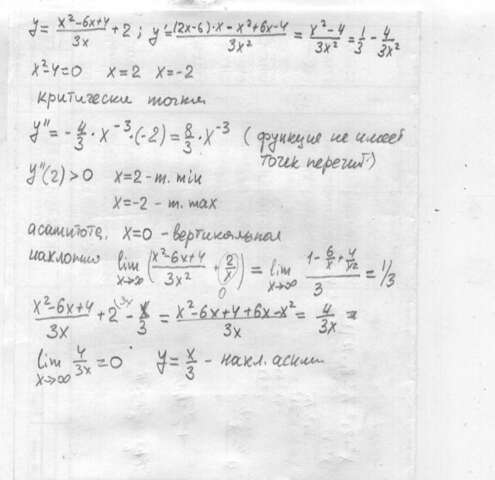 y = (x²-6x+4)/3x + 2 ; y' = ((2x-6)·x - x²+6x-4)/3x² = (x²-4)/3x² = 1/3 - 4/3x²
x²-4=0 x=2 x=-2
критически точки
y'' = -4/3 · x⁻³·(-2) = 8/3 · x⁻³ (функция не имеет
точек перегиб)
y''(2)>0 x=2 - т. min
x=-2 - т. max
асимптота, x=0 - вертикальная
наклонная lim x→∞ ((x²-6x+4)/3x² + 2/x) = lim x→∞ (1 - 6/x + 4/x²)/3 = 1/3
0
(x²-6x+4)/3x + 2 - x/3 = (x²-6x+4+6x-x²)/3x = 4/3x =
lim x→∞ 4/3x = 0 y = x/3 - накл. асим.